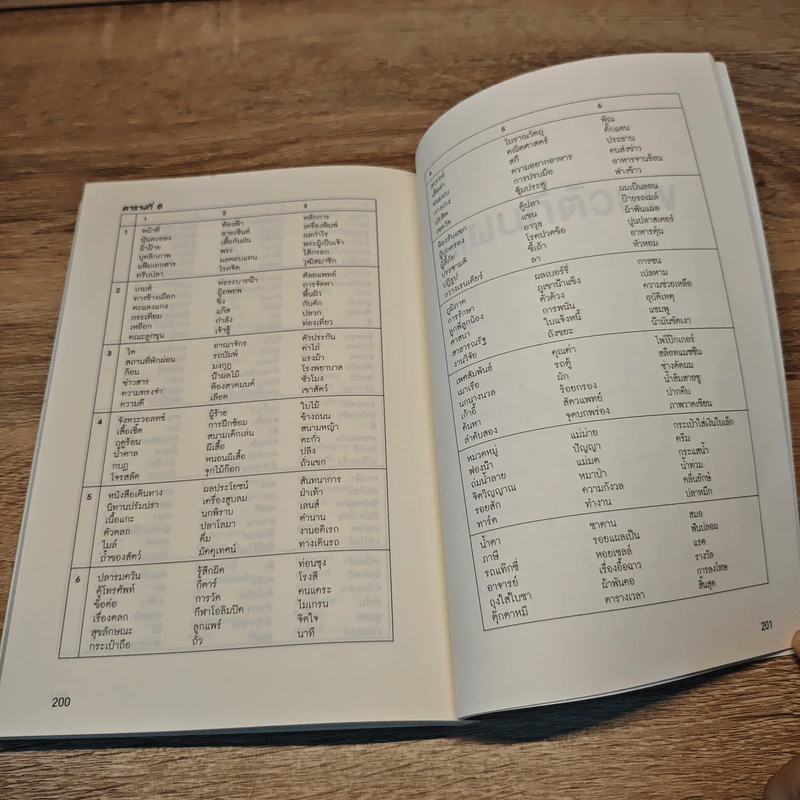 ตารางที่ 6
1 2 3
1 หน้าที่ ท้องฟ้า หลักการ
ฝุ่นละออง ลายเซ็นต์ เครื่องพิมพ์
ฝ้าฝ้าย เสื้อกันฝน ผลกำไร
บุคลิกภาพ พระ พระผู้เป็นเจ้า
แฟ้มเอกสาร ผลตอบแทน ไส้กรอก
ครีบปลา โรคจิต วุฒิสมาชิก
2 เกมส์ ท่อระบายน้ำ ศัลยแพทย์
ทางช้างเผือก ผู้อพยพ การจัดหา
ตะแลงแกง ขิง พื้นผิว
กระเทียม แก๊ส กับดัก
เหยือก กำลัง ปลวก
คณะลูกขุน เจ้าชู้ ท่องเที่ยว
3 ไต อาณาจักร ตัวประกัน
สถานที่พักผ่อน รถบัมพ์ ค่าไถ่
ก้อน มงกุฎ แรงม้า
ข่าวสาร ป่าผลไม้ โรงพยาบาล
ความทรงจำ ห้องสวดมนต์ ชั่วโมง
ความดี เลือด เขาสัตว์
4 จังหวะวอลทซ์ ผู้ร้าย ใบไม้
เสื้อเชิ้ต การฝึกซ้อม ข้างถนน
ฤดูร้อน สนามเด็กเล่น สนามหญ้า
น้ำตาล ผีเสื้อ ตะกั่ว
กบฏ หนอนผีเสื้อ ปลิง
โจรสลัด จุกไม้ก๊อก ถั่วแขก
5 หนังสือเดินทาง ผลประโยชน์ สันทนาการ
นิทานปรัมปรา เครื่องสูบลม ฝ่าเท้า
เนื้อแกะ นกพิราบ เลนส์
ตัวตลก ปลาโลมา ตำนาน
ไมล์ ดื่ม งานอดิเรก
ถ้ำของสัตว์ มัคคุเทศก์ ทางเดินรถ
6 ปลารมควัน รู้สึกผิด ท่อนซุง
ตู้โทรศัพท์ กีตาร์ โรงสี
ข้อต่อ การวัด คนแคระ
เรื่องตลก กีฬาโอลิมปิค ไมเกรน
สุขลักษณะ ลูกแพร์ จิตใจ
กระเป๋าถือ ถั่ว นาที
200
4 5 6
สวรรค์ โบราณวัตถุ พิณ
คณิตศาสตร์ ตั๊กแตน
สกี ประธาน
ความอยากอาหาร คนส่งข่าว
ปรสิต การปรบมือ อาหารจานร้อน
เขตวัด ซุ้มประตู ฟางข้าว
ห้องรับแขก ตู้ปลา ผมเป็นลอน
ผู้ปกครอง แขน ป้ายรถเมล์
ผู้ลี้ภัย อาวุธ ผ้าพันแผล
ประชามติ โรคปวดข้อ ปูนปลาสเตอร์
ปฏิรูป ขี้เถ้า อาหารตุ๋น
กวางเรนเดียร์ ลา หัวหอม
ภูมิภาค ผลเบอร์รี่ การชน
การรักษา ภูเขาน้ำแข็ง เปลหาม
ลูกพี่ลูกน้อง ตัวด้วง ความช่วยเหลือ
ศาสนา การพนัน อุบัติเหตุ
สาธารณรัฐ ใบแจ้งหนี้ แชมพู
งานวิจัย ถังขยะ น้ำมันขัดเงา
เพศสัมพันธ์ คุณค่า ไพ่โป๊กเกอร์
เมาเรือ รถตู้ สล๊อทแมชชีน
นกนางนวล ผัก ช่างตัดผม
เก้าอี้ ร้อยกรอง น้ำส้มสายชู
ค้นหา สัตวแพทย์ ปากคีบ
ลำดับสอง จุดบกพร่อง ภาพวาดเขียน
หมวดหมู่ แม่ม่าย กระเป๋าใส่เงินใบเล็ก
ฟองน้ำ ปัญญา ครีม
ถ่มน้ำลาย แม่มด กระแสน้ำ
จิตวิญญาณ หมาป่า น้ำท่วม
รอยสัก ความกังวล คลื่นยักษ์
ทาร์ต ทำงาน ปลาหมึก
น้ำตา ซาตาน สมอ
ภาษี รอยแผลเป็น ฟันปลอม
รถแท๊กซี่ หอยเชลล์ แรด
อาจารย์ เรื่องอื้อฉาว รางวัล
ถุงใส่ใบชา ผ้าพันคอ การลงโทษ
ตุ๊กตาหมี ตารางเวลา สิ้นสุด
201